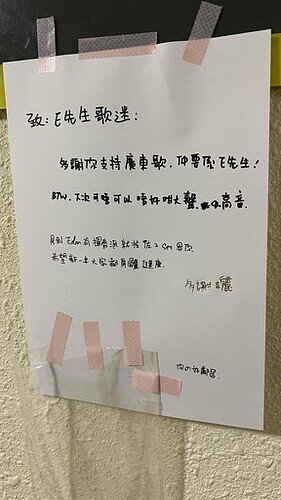 致：E先生歌迷：
多謝你支持廣東歌，仲要係E先生！
BTW，下次可唔可以唔好咁大聲 高音.
見到Edan有擴香派就拎左2 set 俾你.
希望新一年大家都身體健康.
多謝晒
你の好鄰居.